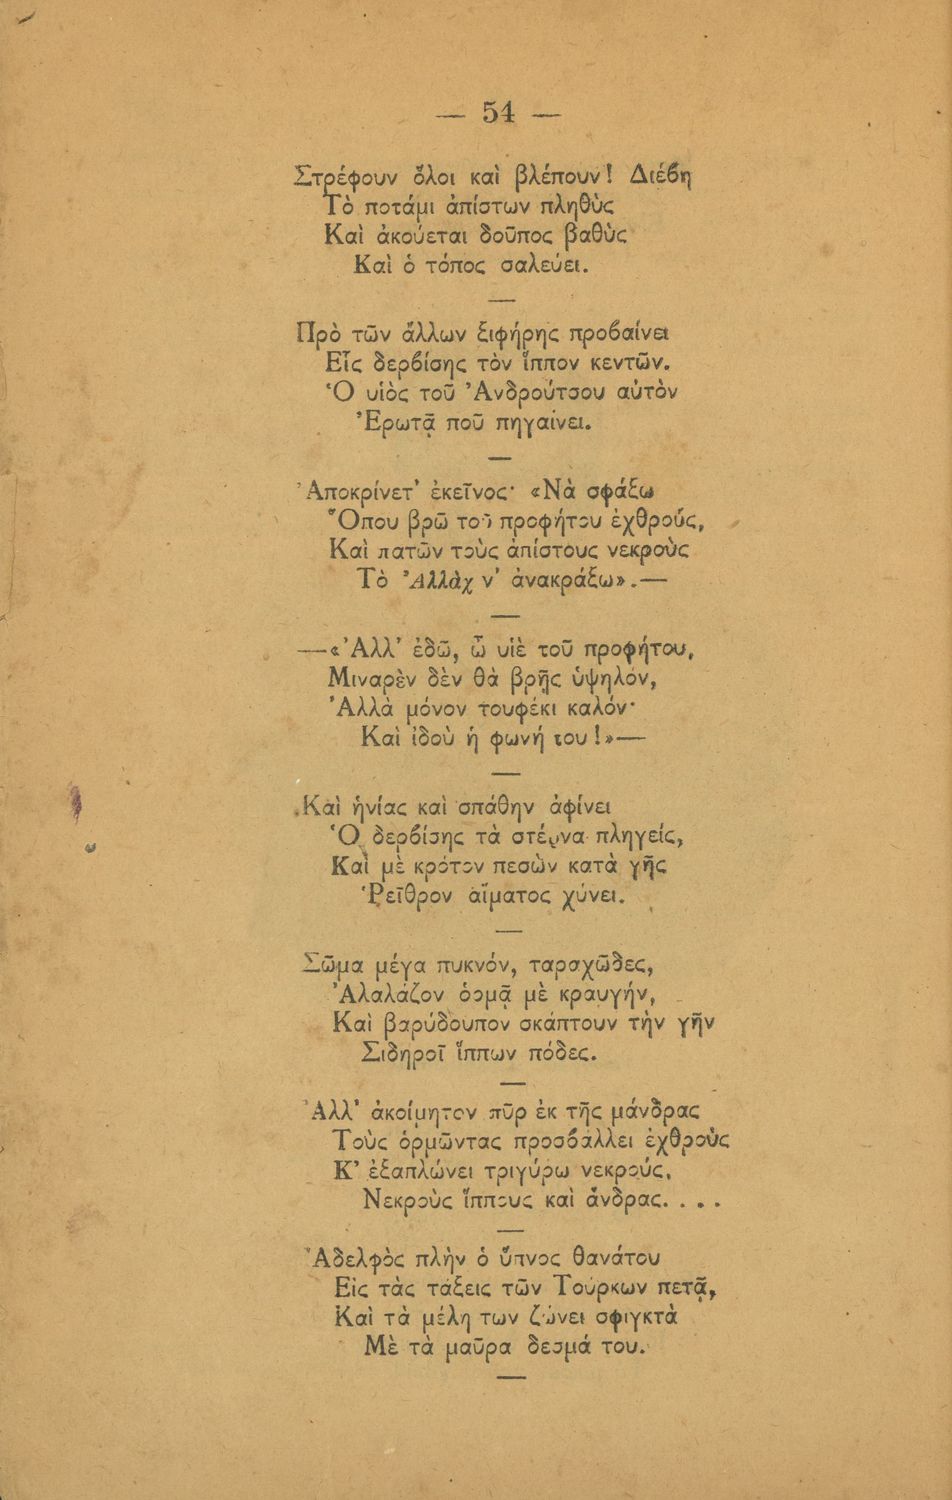 — 54 —
Στρέφουν ὅλοι καὶ βλέπουν! Διέβη
Τὸ ποτάμι ἀπίστων πληθὺς
Καὶ ἀκούεται δοῦπος βαθὺς
Καὶ ὁ τόπος σαλεύει.
Πρὸ τῶν ἄλλων ξιφήρης προβαίνει
Εἷς δερβίσης τὸν ἵππον κεντῶν.
Ὁ υἱὸς τοῦ Ἀνδρούτσου αὐτὸν
Ἐρωτᾷ ποῦ πηγαίνει.
Ἀποκρίνετ' ἐκεῖνος· «Νὰ σφάξω
Ὅπου βρῶ τοῦ προφήτου ἐχθρούς,
Καὶ πατῶν τοὺς ἀπίστους νεκροὺς
Τὸ Ἀλλὰχ ν' ἀνακράξω».—
—«Ἀλλ' ἐδῶ, ὦ υἱὲ τοῦ προφήτου,
Μιναρὲν δὲν θὰ βρῇς ὑψηλόν,
Ἀλλὰ μόνον τουφέκι καλόν·
Καὶ ἰδοὺ ἡ φωνή του!»—
Καὶ ἡνίας καὶ σπάθην ἀφίνει
Ὁ δερβίσης τὰ στέρνα πληγείς,
Καὶ μὲ κρότον πεσὼν κατὰ γῆς
Ῥεῖθρον αἵματος χύνει.
Σῶμα μέγα πυκνόν, ταραχῶδες,
Ἀλαλάζον ὁρμᾷ μὲ κραυγήν,
Καὶ βαρύδουπον σκάπτουν τὴν γῆν
Σιδηροῖ ἵππων πόδες.
Ἀλλ' ἀκοίμητον πῦρ ἐκ τῆς μάνδρας
Τοὺς ὁρμῶντας προσβάλλει ἐχθροὺς
Κ' ἐξαπλώνει τριγύρω νεκρούς,
Νεκροὺς ἵππους καὶ ἄνδρας. . . .
Ἀδελφὸς πλὴν ὁ ὕπνος θανάτου
Εἰς τὰς τάξεις τῶν Τούρκων πετᾷ,
Καὶ τὰ μέλη των ζώνει σφιγκτὰ
Μὲ τὰ μαῦρα δεσμά του.